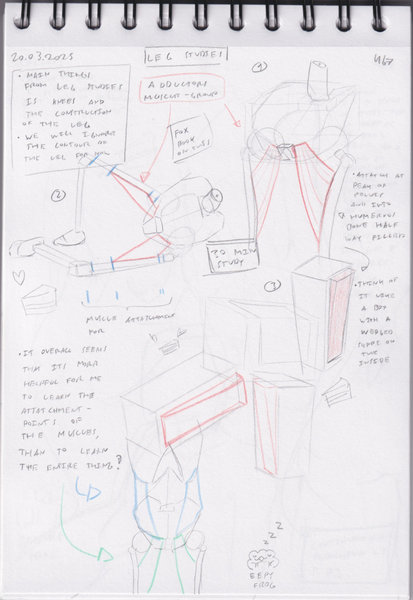 20.03.2025
LEG STUDIES
467
• MAIN THINGS
FROM LEG STUDIES
IS KNEES AND
THE CONSTRUCTION
OF THE LEG
• WE WILL IGNORE
THE CONTOUR OF
THE LEG FOR NOW
ADDUCTORS
MUSCLE-GROUP
FOX
BODY
ON THIS
1
2
30 MIN
STUDY
• ATTACH AT
PEAK OF
PELVIS
AND INTO
HUMERUS
BONE HALF
WAY
3
• THINK OF
IT LIKE
A BOX
WITH A
WEDGED
SHAPE ON
THE
INSIDE
MUSCLE ATTATCHMENT
FOR
• IT OVERALL SEEMS
THAT ITS MORE
HELPFUL FOR ME
TO LEARN THE
ATTATCHMENT-
POINTS OF
THE MUCLES,
THAN TO LEARN
THE ENTIRE THING?
Z
Z
Z
EEPY
FROG